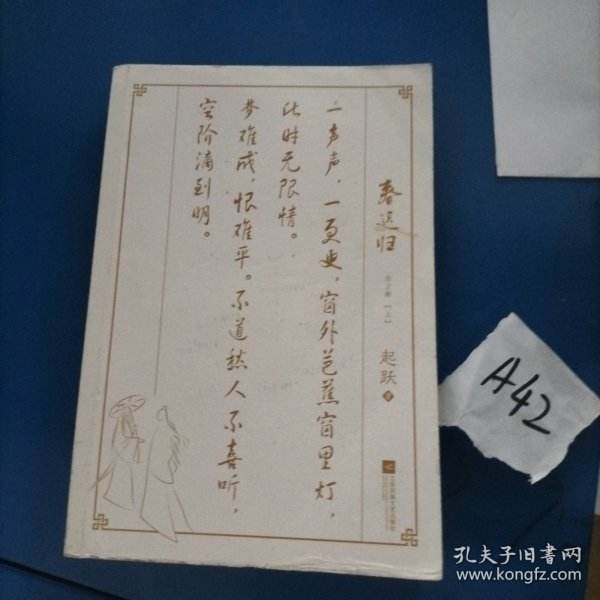 春迟归
全2册（上）
起跃 著
江苏凤凰文艺出版社
二声声，一更更，窗外芭蕉窗里灯，
此时无限情。
梦难成，恨难平。不道愁人不喜听，
空阶滴到明。
A42
孔夫子旧书网
www.kongfz.com